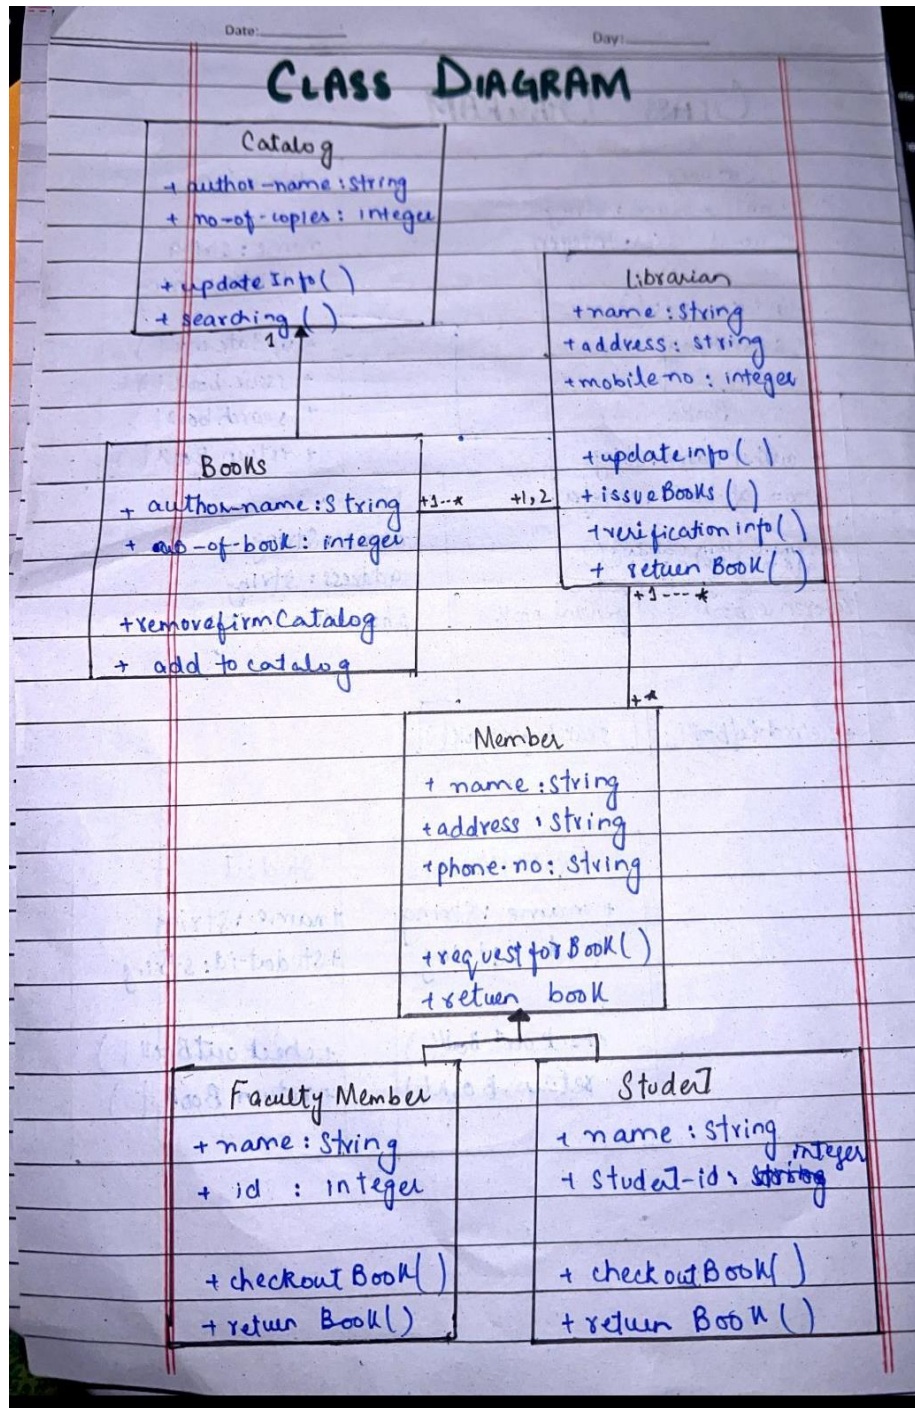 Date:
Day:
CLASS DIAGRAM
Catalog
+ author-name : string
+ no-of-copies : integer
+ update Info ( )
+ searching ( )
1
Librarian
+ name : string
+ address : string
+ mobile no : integer
+ updateinfo ( )
+ issueBooks ( )
+ verification info ( )
+ return Book ( )
Books
+ author-name : String
+ no-of-book : integer
+ removefirm Catalog
+ add to catalog
+1--*
+1,2
+1---*
+*
Member
+ name : string
+ address : string
+ phone.no : string
+ request for Book ( )
+ return book
Faculty Member
+ name : string
+ id : integer
+ checkout Book ( )
+ return Book ( )
Student
+ name : string
+ Student-id : integer
+ checkout Book ( )
+ return Book ( )